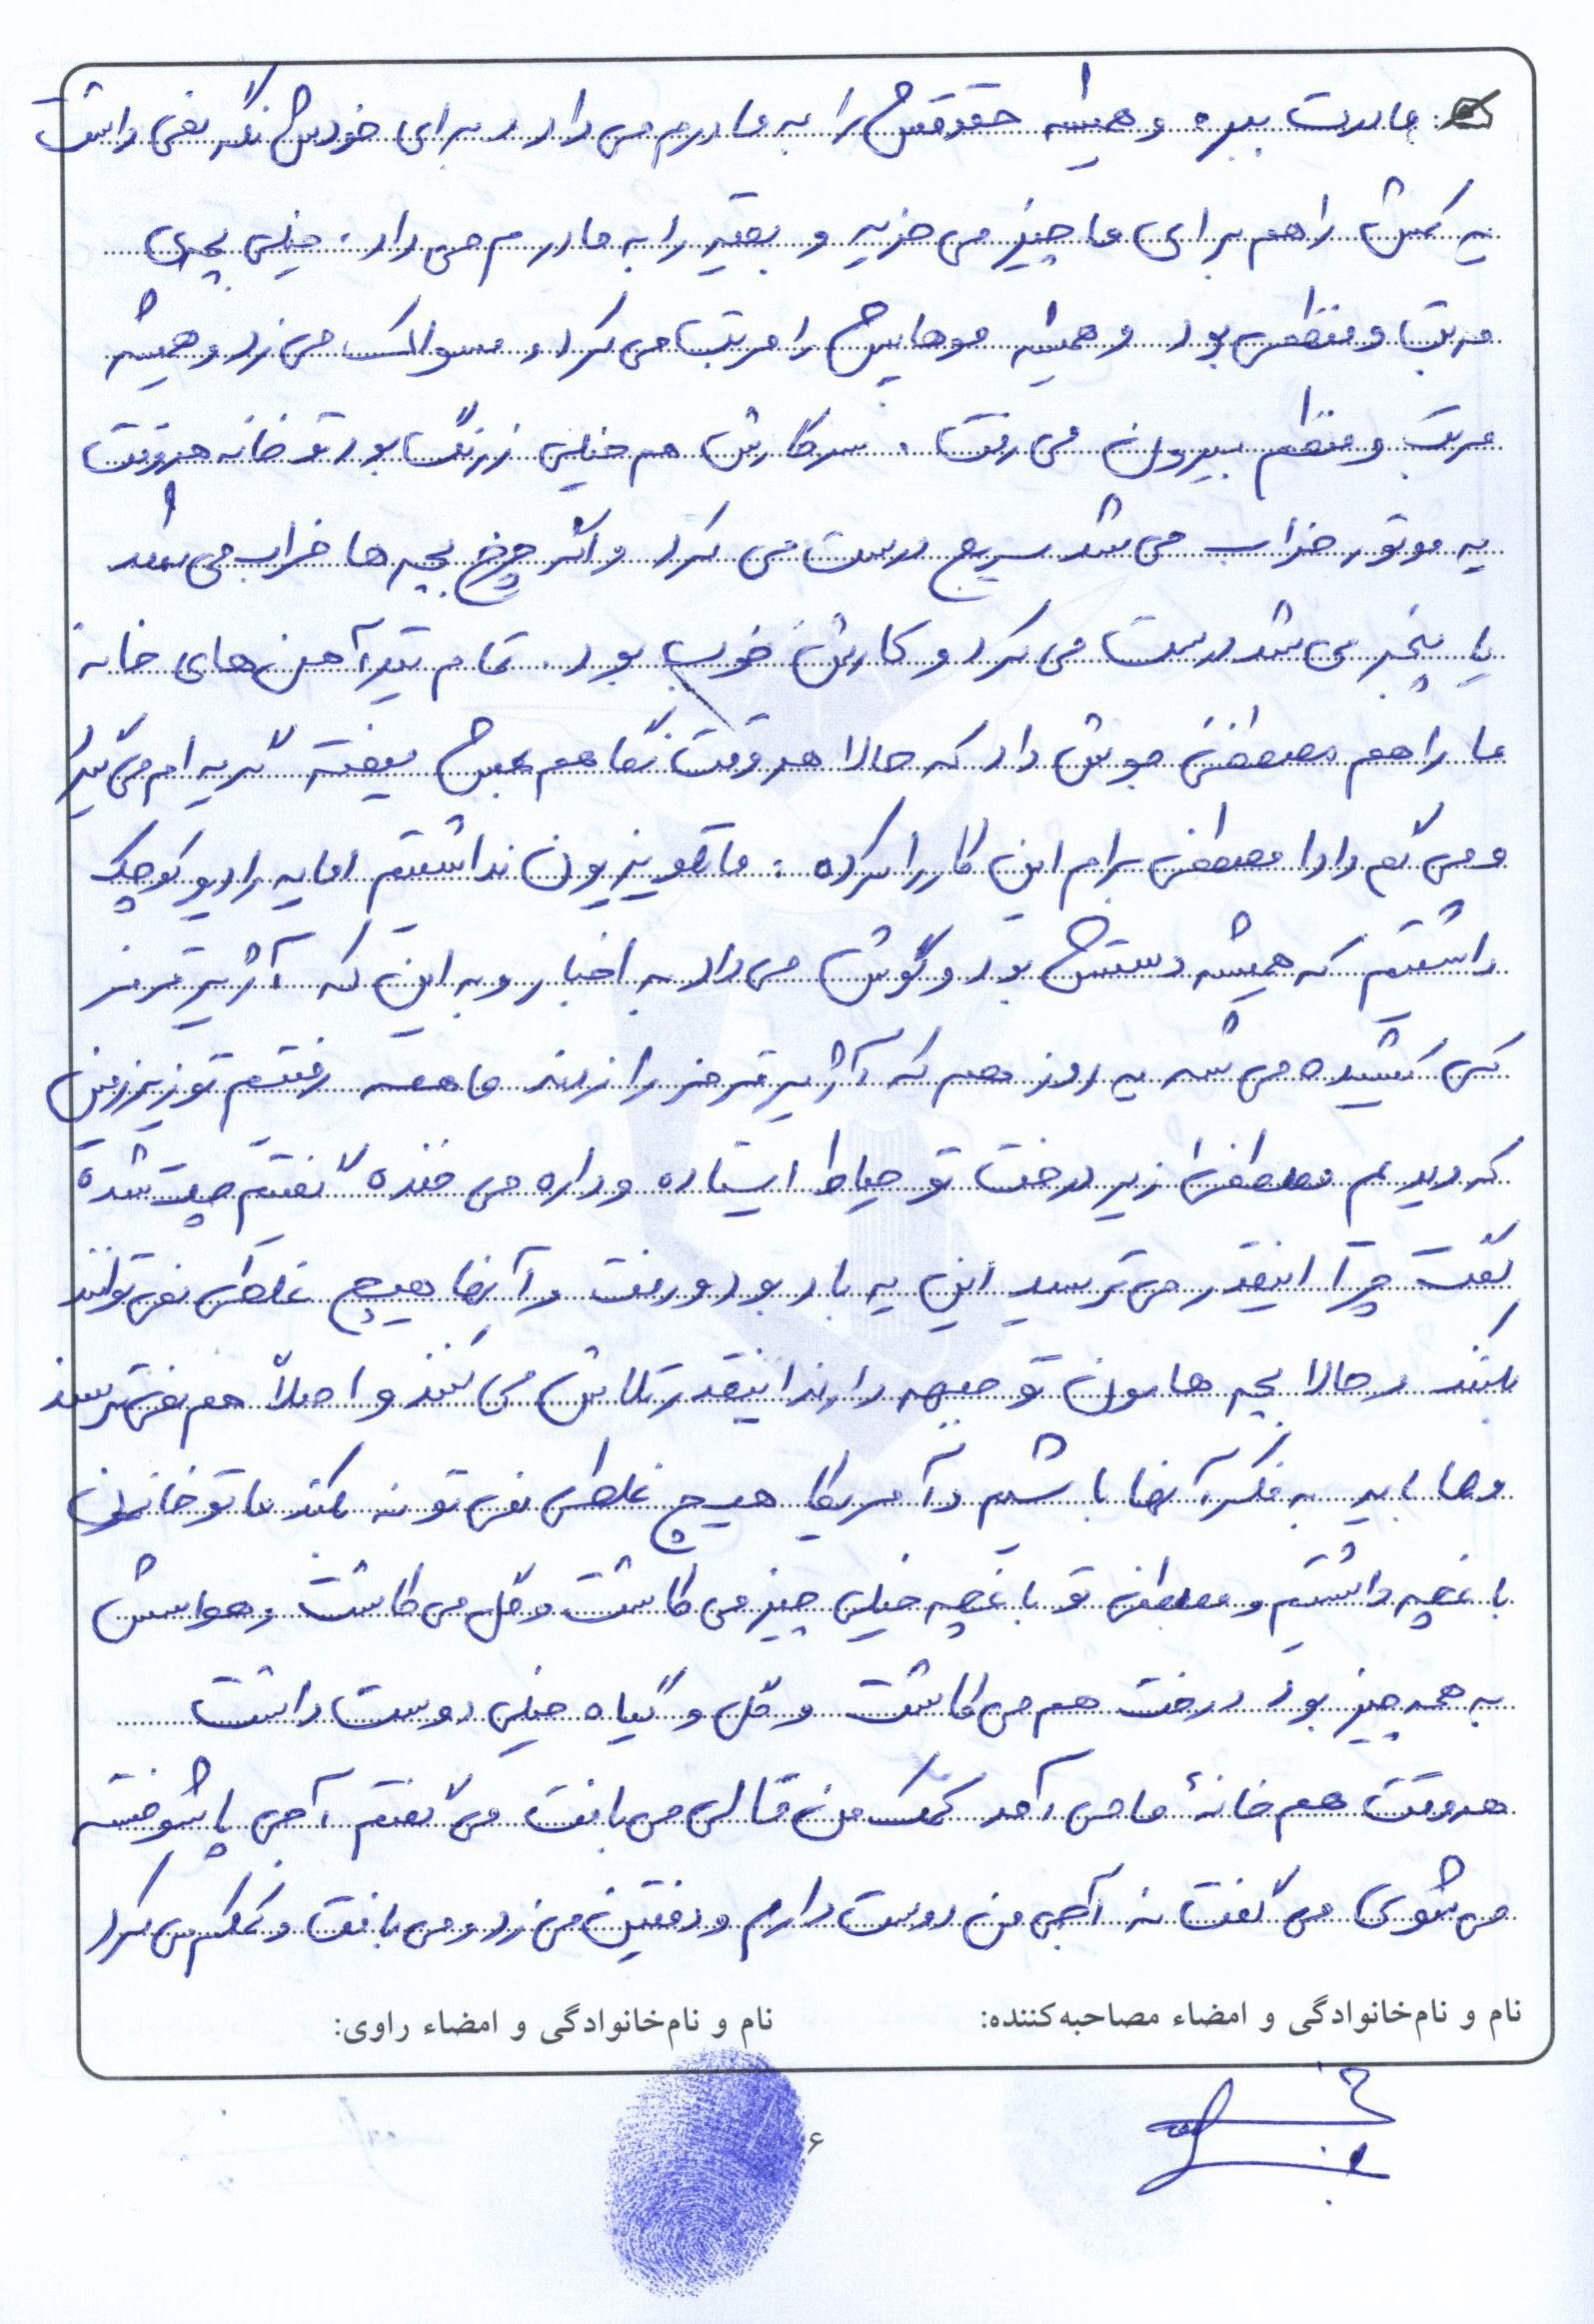 مادرت ببره و همیشه حقوقش را به مادرم می داد و برای خودش نگه نمی داشت
یه کمش را هم برای ما چیز می خرید و بقیه را به مادرم می داد. خیلی بچه‌ی
مرتب و منظمی بود و همیشه موهایش را مرتب می کرد و مسواک می زد و همیشه
مرتب و منظم بیرون می رفت. سرکارش هم خیلی زرنگ بود تو خانه هر وقت
یه موتور خراب می شد سریع درست می کرد و اگر چرخ بچه ها خراب می شد
یا پنچر می شد درست می کرد و کارش خوب بود. تمام تیرآهن های خانه
ما را هم مصطفی جوش داد که حالا هر وقت نگاهم بهش میفته گریه ام می گیرد
و می گم دادا مصطفی برام این کار را کرده. ما تلویزیون نداشتیم اما یه رادیو کوچک
داشتیم که همیشه دستش بود و گوش می داد به اخبار و به این که آژیر قرمز
کی کشیده می شه یه روز هم که آژیر قرمز را زدند ما همه رفتیم تو زیرزمین
که دیدیم مصطفی زیر درخت تو حیاط ایستاده و داره می خنده گفتیم چت شده
گفت چرا اینقدر می ترسید این یه بار بود و رفت و آنها هیچ غلطی نمی توانند
بکنند و حالا بچه هامون تو جبهه دارند اینقدر تلاش می کنند و اصلاً هم نمی ترسند
و ما باید به فکر آنها باشیم و آمریکا هیچ غلطی نمی تونه بکند ما تو خانمون
باغچه داشتیم و مصطفی تو باغچه خیلی چیز می کاشت و گل می کاشت و هواسش
به همه چیز بود درخت هم می کاشت و گل و گیاه خیلی دوست داشت
هر وقت هم خانهٔ ما می آمد کمک من قالی می بافت می گفتم آجی پاشو خسته
می شوی می گفت نه آجی من دوست دارم و دفتین می زد و می بافت و کمکم می کرد
نام و نام‌خانوادگی و امضاء مصاحبه‌کننده: نام و نام‌خانوادگی و امضاء راوی:
۶